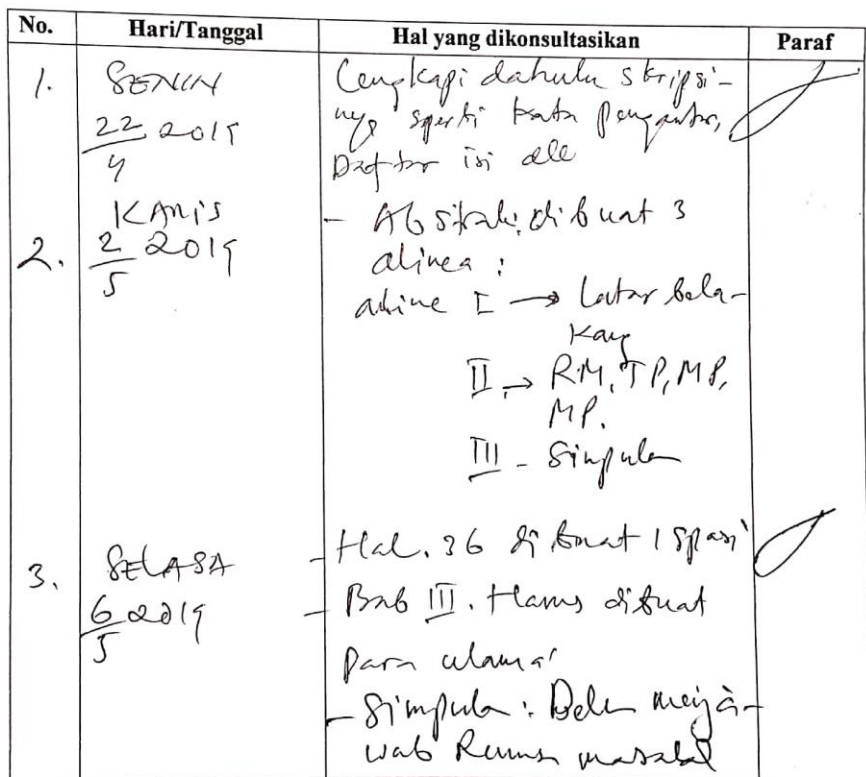 No. Hari/Tanggal Hal yang dikonsultasikan Paraf
1. SENIN Lengkapi dahulu skripsi-
22/4 2019 nya sperti kata pengantar,
Daftar isi dll
KAMIS - Abstrak dibuat 3
2. 2/5 2019 alinea :
aline I → Latar bela-
kang
II → RM, TP, MP,
MP.
III - Simpulan
3. SELASA - Hal. 36 di buat 1 spasi
6/5 2019 - Bab III. Harus dibuat
para ulama'
- Simpulan : Belum menja-
wab Rumusan masalah